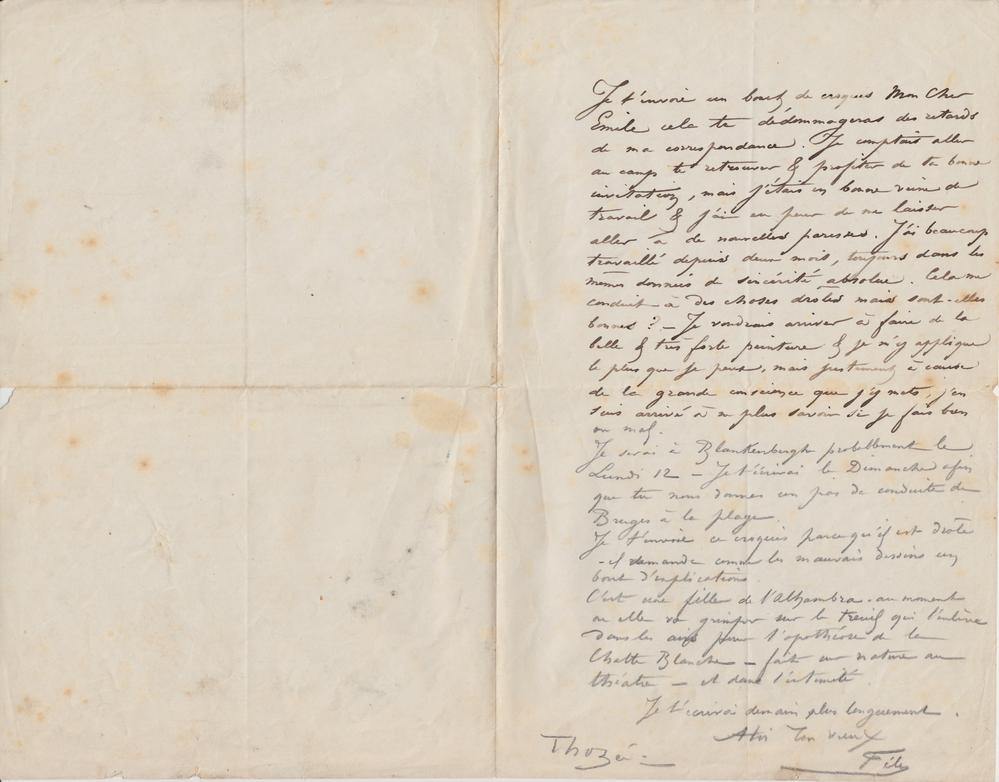 Je t'envoie un bout de croquis Mon Cher
Emile cela te dédommageras des retards
de ma correspondance. Je comptais aller
au camp te retrouver & profiter de ta bonne
invitation, mais j'étais en bonne veine de
travail & j'ai eu peur de me laisser
aller à de nouvelles paresses. J'ai beaucoup
travaillé depuis deux mois, toujours dans les
mêmes données de sincérité absolue. Cela me
conduit à des choses drôles mais sont-elles
bonnes ? – Je voudrais arriver à faire de la
belle & très forte peinture & je m'y applique
le plus que je peux, mais justement à cause
de la grande conscience que j'y mets, j'en
suis arrivé à ne plus savoir si je fais bien
ou mal.
Je serai à Blankenbergh probablement le
Lundi 12 – Je t'écrirai le Dimanche afin
que tu nous donnes un pas de conduite de
Bruges à la plage.
Je t'envoie ce croquis parce qu'il est drôle
– il demande comme les mauvais dessins un
bout d'explications.
C'est une fille de l'Alhambra – au moment
ou elle va grimper sur le treuil qui l'enlève
dans les airs pour l'apothéose de la
Chatte Blanche – fait sur nature au
théatre – et dans l'intimité.
Je t'écrirai demain plus longuement.
Ton vieux
Thozée –
Fély